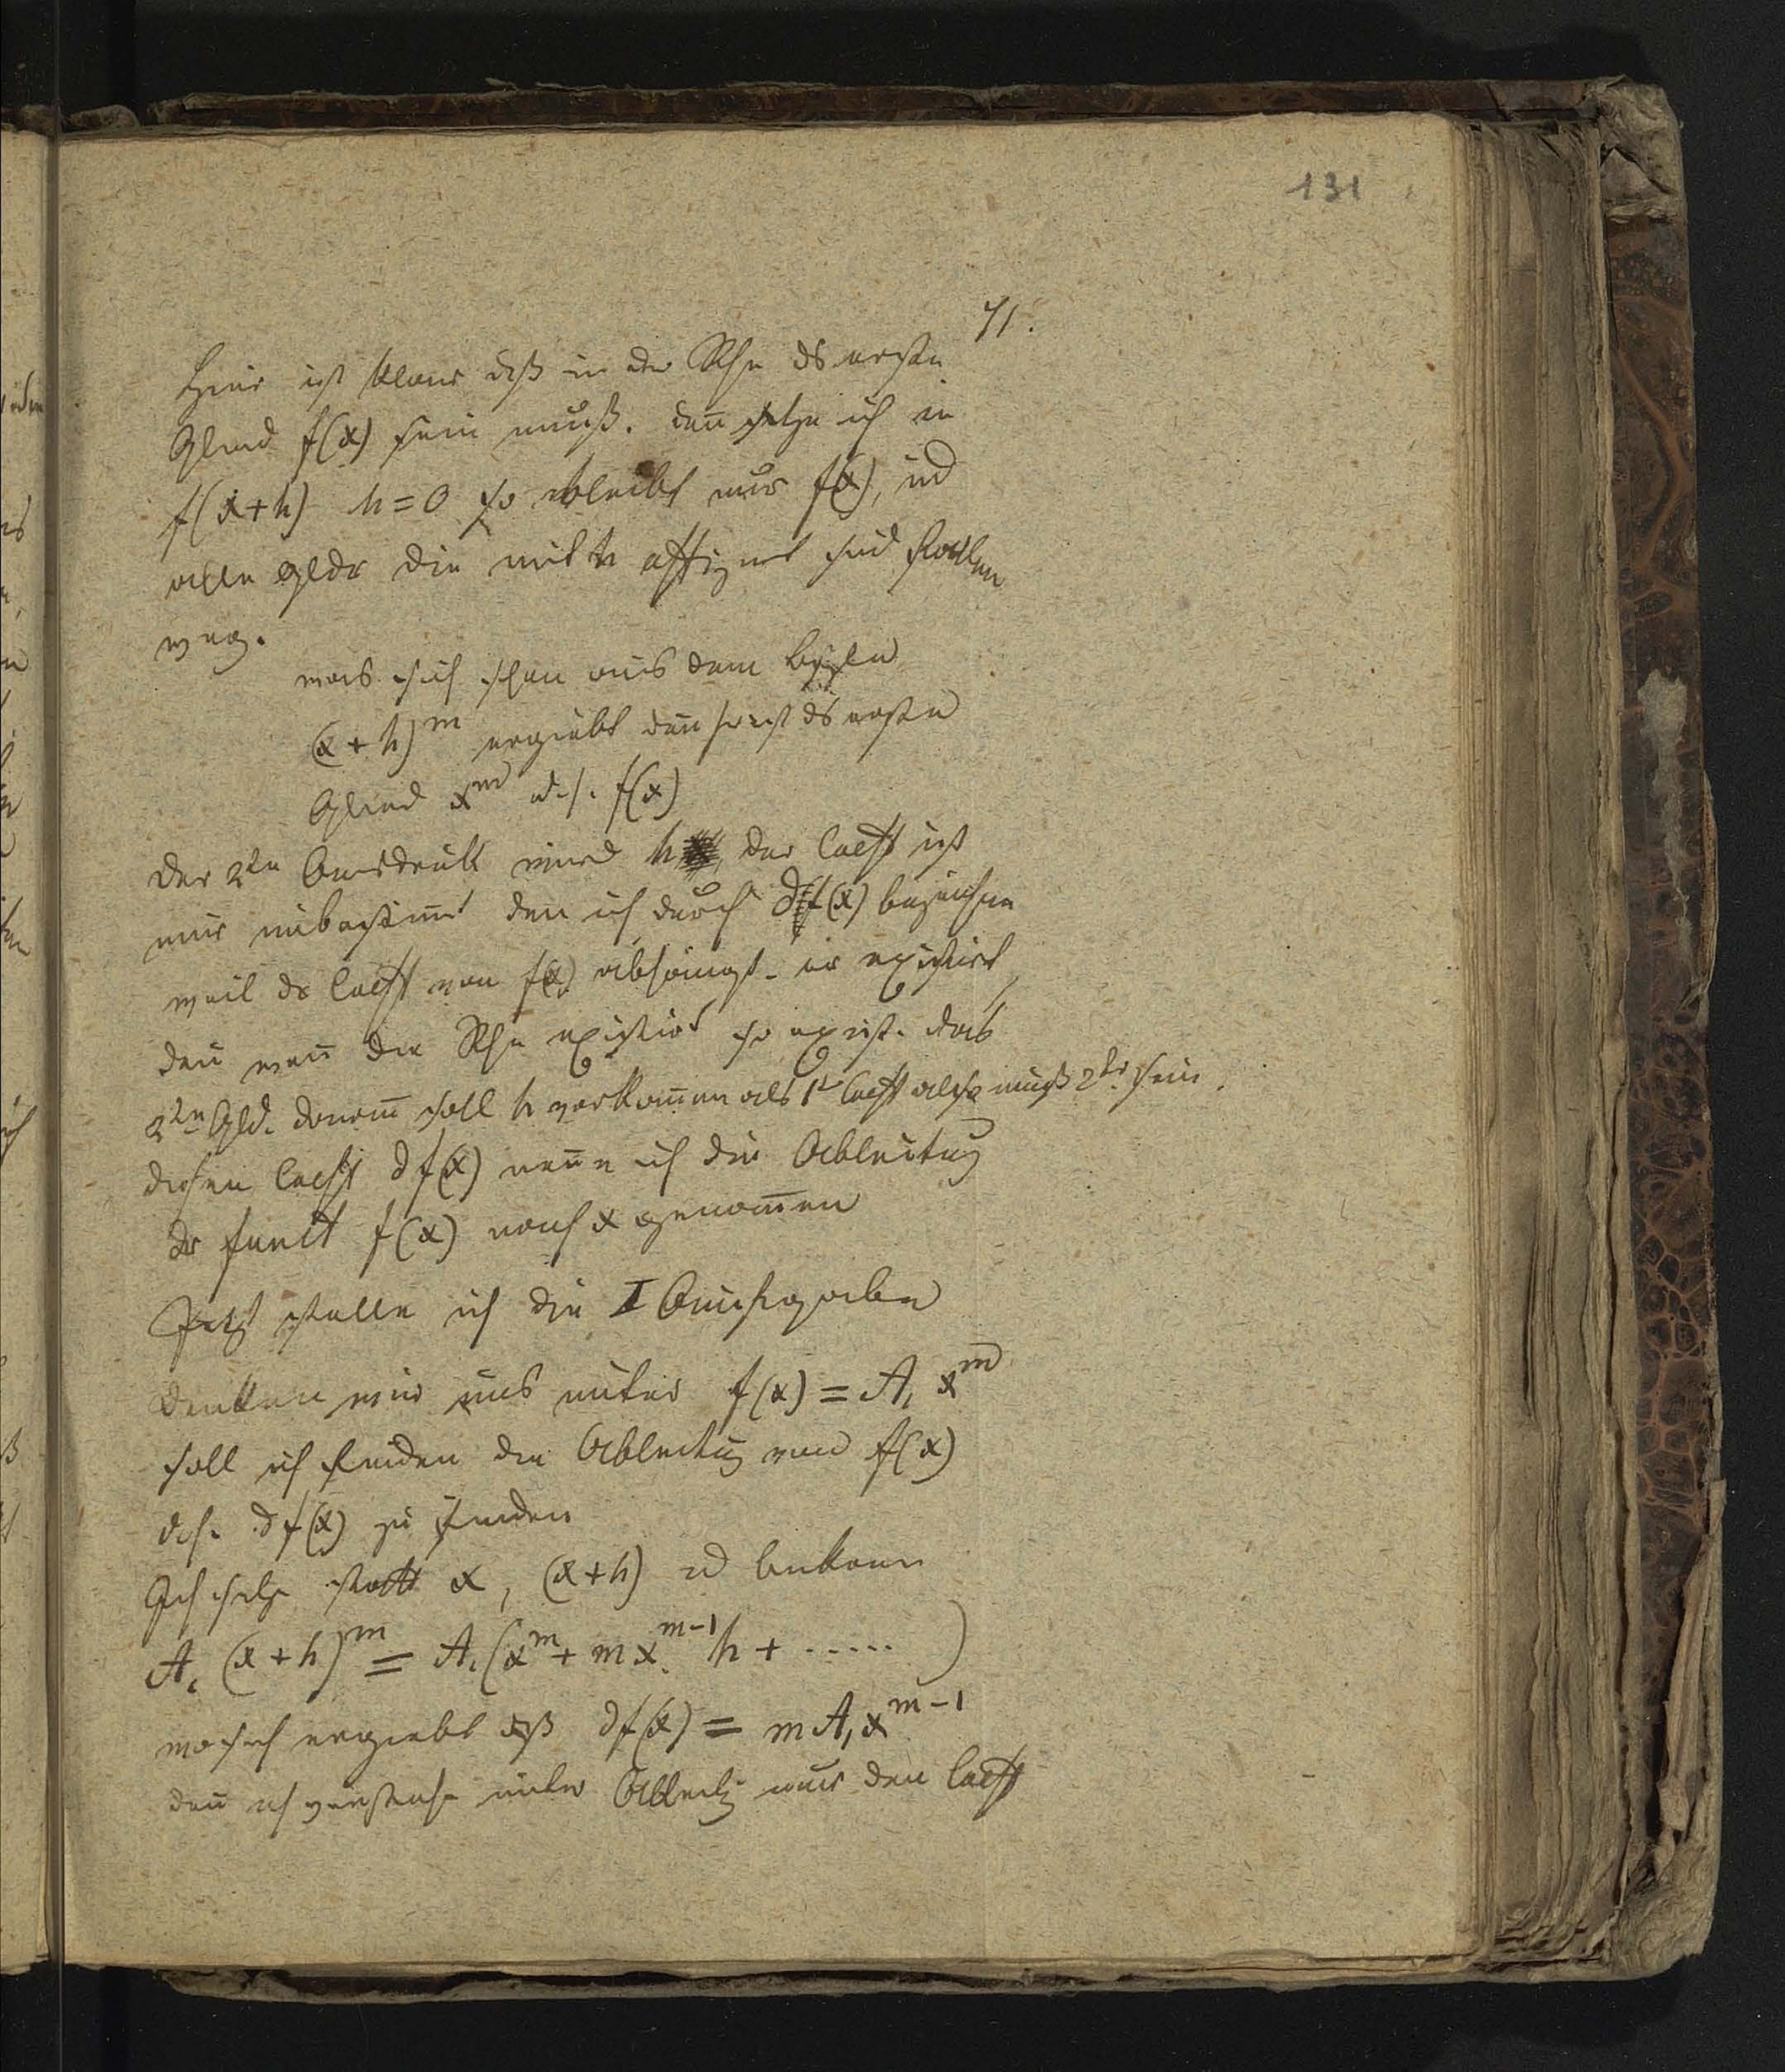 131
71.
Hier ist klar daß in der Rhe ds erste
Glied f(x) sein muß. den̄ setze ich in
f(x+h) h=0 so bleibt nur f(x), und
alle Gldr die mit h affizirt sind fallen
weg.
was sich schon aus dem Bspl
(x+h)^m ergiebt den̄ hier ist ds erste
Glied x^m d.h. f(x)
Der 2te Ausdruck wird h, der Coeff ist
nur unbestim̄t den ich durch df(x) bezeichne
weil dr Coeff von f(x) abhängt. er existirt,
den̄ wen̄ die Rhe existirt so exist. das
2te Gld. darin soll h vorkom̄en als 1t Coeff also muß 2tr sein.
diesen Coeff df(x) nen̄e ich die Ableitung
dr funct f(x) nach x genom̄en
Jetzt stelle ich die I Aufgabe
denken wir uns unter f(x) = A₁ x^m
soll ich finden die Ableitug von f(x)
d.h. df(x) zu finden
Ich setze statt x, (x+h) u bekom̄e
A₁ (x+h)^m = A₁(x^m + m x^{m-1} h + ..... )
wo sich ergiebt dß df(x) = m A₁ x^{m-1}
den̄ ich verstehe unter Ableitg nur den Coeff